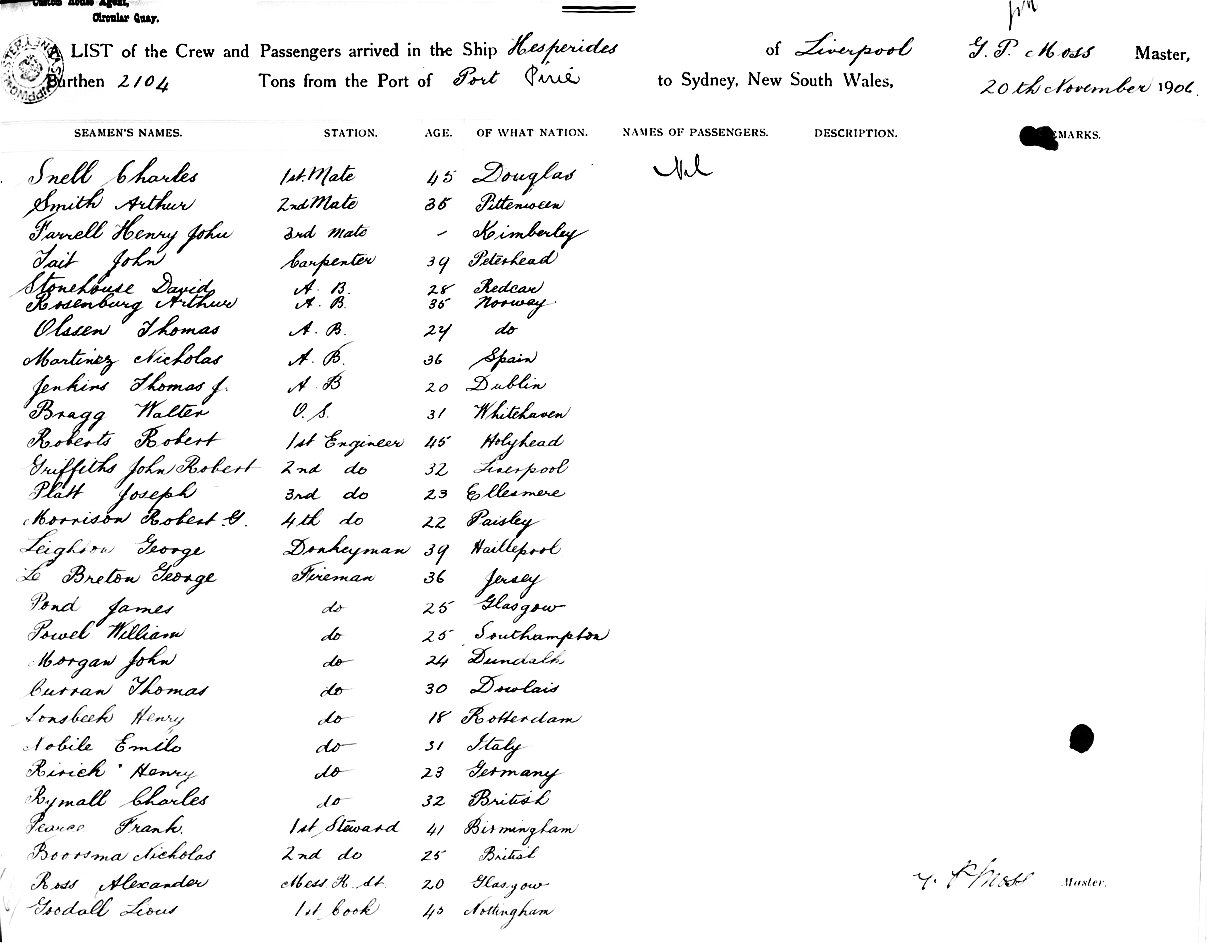 Custom House Agent,
Circular Quay.
A LIST of the Crew and Passengers arrived in the Ship Hesperides of Liverpool G. P. Moss Master,
Burthen 2104 Tons from the Port of Port Pirie to Sydney, New South Wales, 20th November 1906.
SEAMEN'S NAMES. STATION. AGE. OF WHAT NATION. NAMES OF PASSENGERS. DESCRIPTION. REMARKS.
Snell Charles 1st. Mate 45 Douglas Nil
Smith Arthur 2nd Mate 35 Pittenween
Farrell Henry John 3rd Mate - Kimberley
Tait John Carpenter 39 Peterhead
Stonehouse David A. B. 28 Redcar
Rosenburg Arthur A. B. 35 Norway
Olssen Thomas A. B. 24 do
Martinez Nicholas A. B. 36 Spain
Jenkins Thomas J. A. B 20 Dublin
Bragg Walter O. S. 31 Whitehaven
Roberts Robert 1st Engineer 45 Holyhead
Griffiths John Robert 2nd do 32 Liverpool
Platt Joseph 3rd do 23 Ellesmere
Morrison Robert G. 4th do 22 Paisley
Leighton George Donkeyman 39
Le Breton George Fireman 36 Jersey
Pond James do 25 Glasgow
Powel William do 25 Southampton
Morgan John do 24 Dundalk
Curran Thomas do 30 Dowlais
Lonsbeek Henry do 18 Rotterdam
Nobile Emilo do 31 Italy
Ririck Henry do 23 Germany
Rymall Charles do 32 British
Pearce Frank. 1st Steward 41 Birmingham
Boorsma Nicholas 2nd do 25 British
Ross Alexander Mess R. St. 20 Glasgow
Goodall Lious 1st Cook 45 Nottingham
G. P. Moss Master.